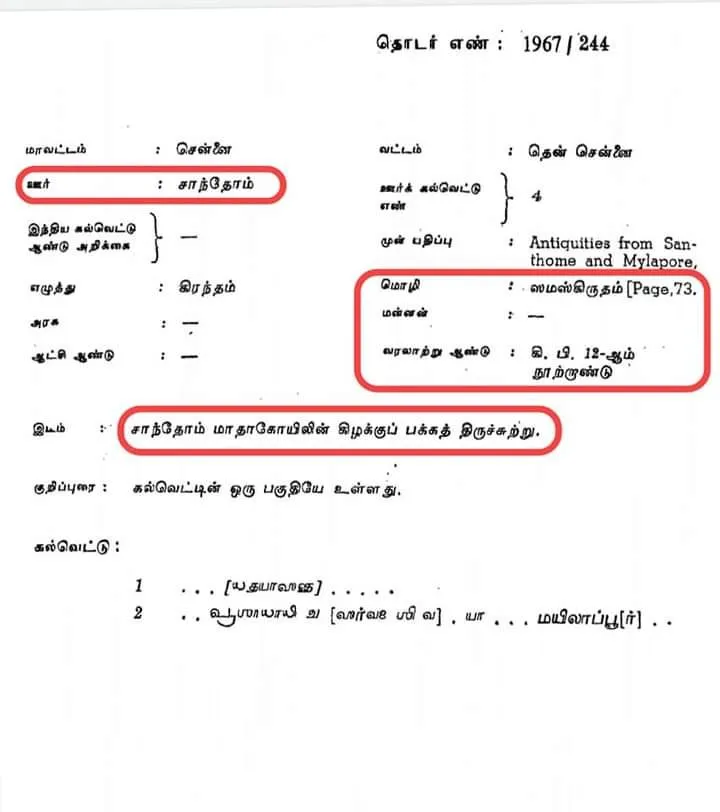 தொடர் எண் : 1967 / 244
மாவட்டம் : சென்னை
வட்டம் : தென் சென்னை
ஊர் : சாந்தோம்
ஊர்க் கல்வெட்டு எண் } 4
இந்திய கல்வெட்டு ஆண்டு அறிக்கை } —
முன் பதிப்பு : Antiquities from San-
thome and Mylapore,
எழுத்து : கிரந்தம்
மொழி : ஸமஸ்கிருதம் [Page,73.
அரசு : —
மன்னன் : —
ஆட்சி ஆண்டு : —
வரலாற்று ஆண்டு : கி. பி. 12-ஆம்
நூற்றாண்டு
இடம் : சாந்தோம் மாதாகோயிலின் கிழக்குப் பக்கத் திருச்சுற்று.
குறிப்புரை : கல்வெட்டின் ஒரு பகுதியே உள்ளது.
கல்வெட்டு :
1 . . . . . . . .
2 . . . யா . . . மயிலாப்பூ[ர்] . .